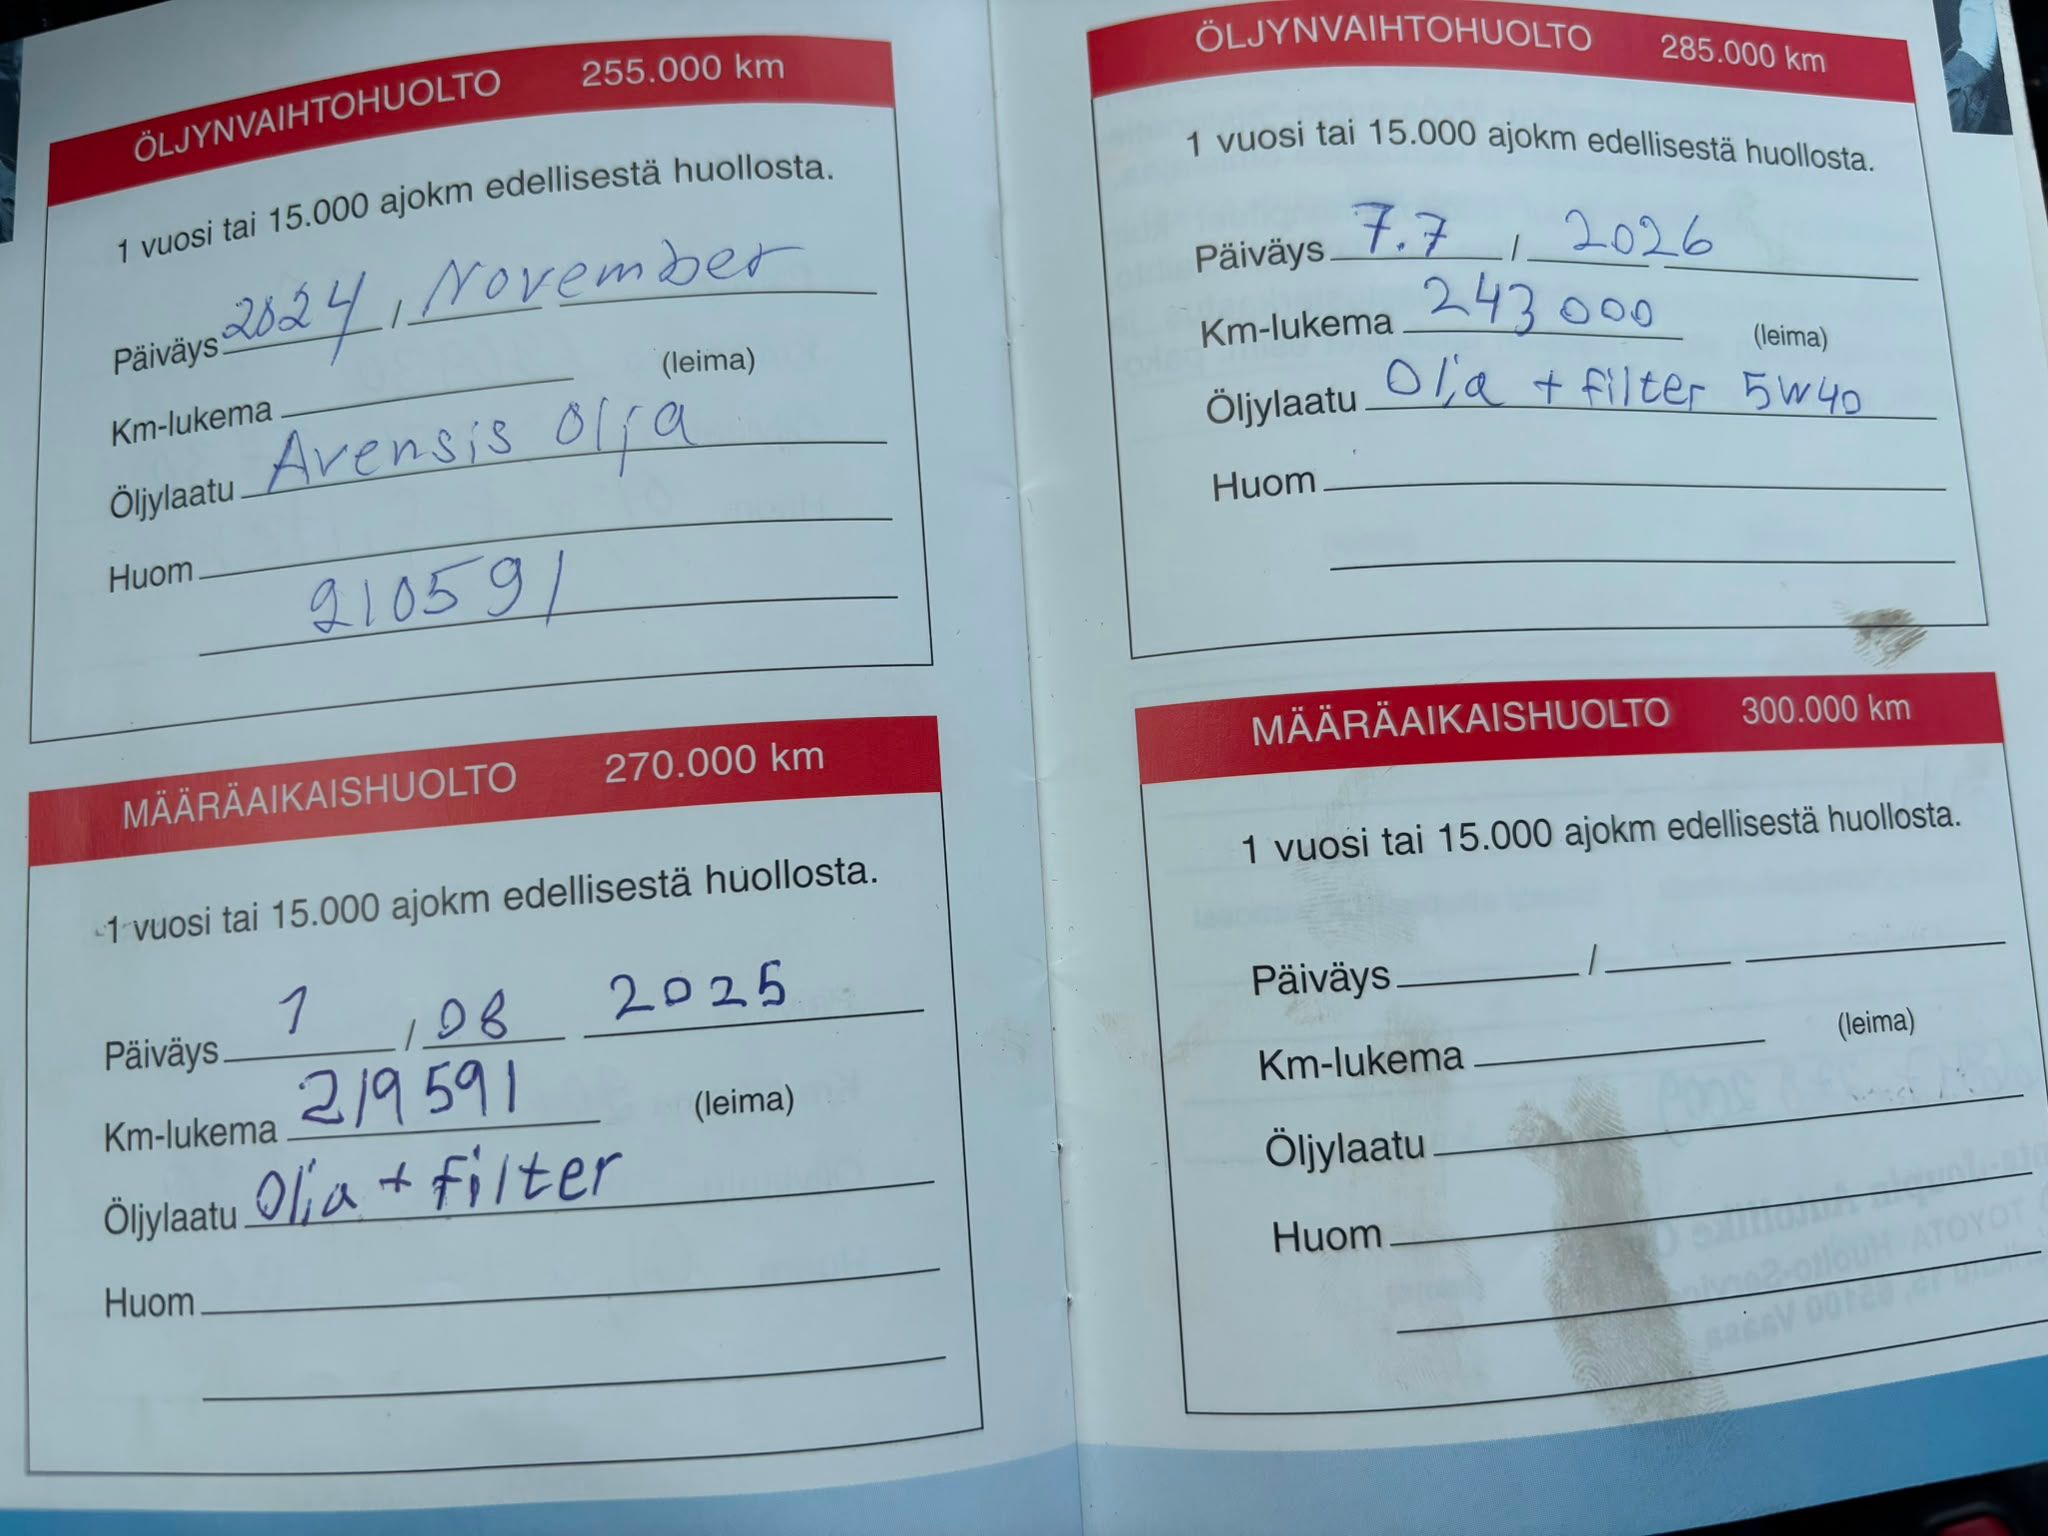 ÖLJYNVAIHTOHUOLTO 255.000 km
1 vuosi tai 15.000 ajokm edellisestä huollosta.
Päiväys 2024 / November
Km-lukema (leima)
Öljylaatu Avensis Olja
Huom
210591
MÄÄRÄAIKAISHUOLTO 270.000 km
1 vuosi tai 15.000 ajokm edellisestä huollosta.
Päiväys 1 / 08 2025
Km-lukema 219591 (leima)
Öljylaatu Olja + filter
Huom
ÖLJYNVAIHTOHUOLTO 285.000 km
1 vuosi tai 15.000 ajokm edellisestä huollosta.
Päiväys 7.7 / 2026
Km-lukema 243000 (leima)
Öljylaatu Olja + filter 5W40
Huom
MÄÄRÄAIKAISHUOLTO 300.000 km
1 vuosi tai 15.000 ajokm edellisestä huollosta.
Päiväys /
Km-lukema (leima)
Öljylaatu
Huom